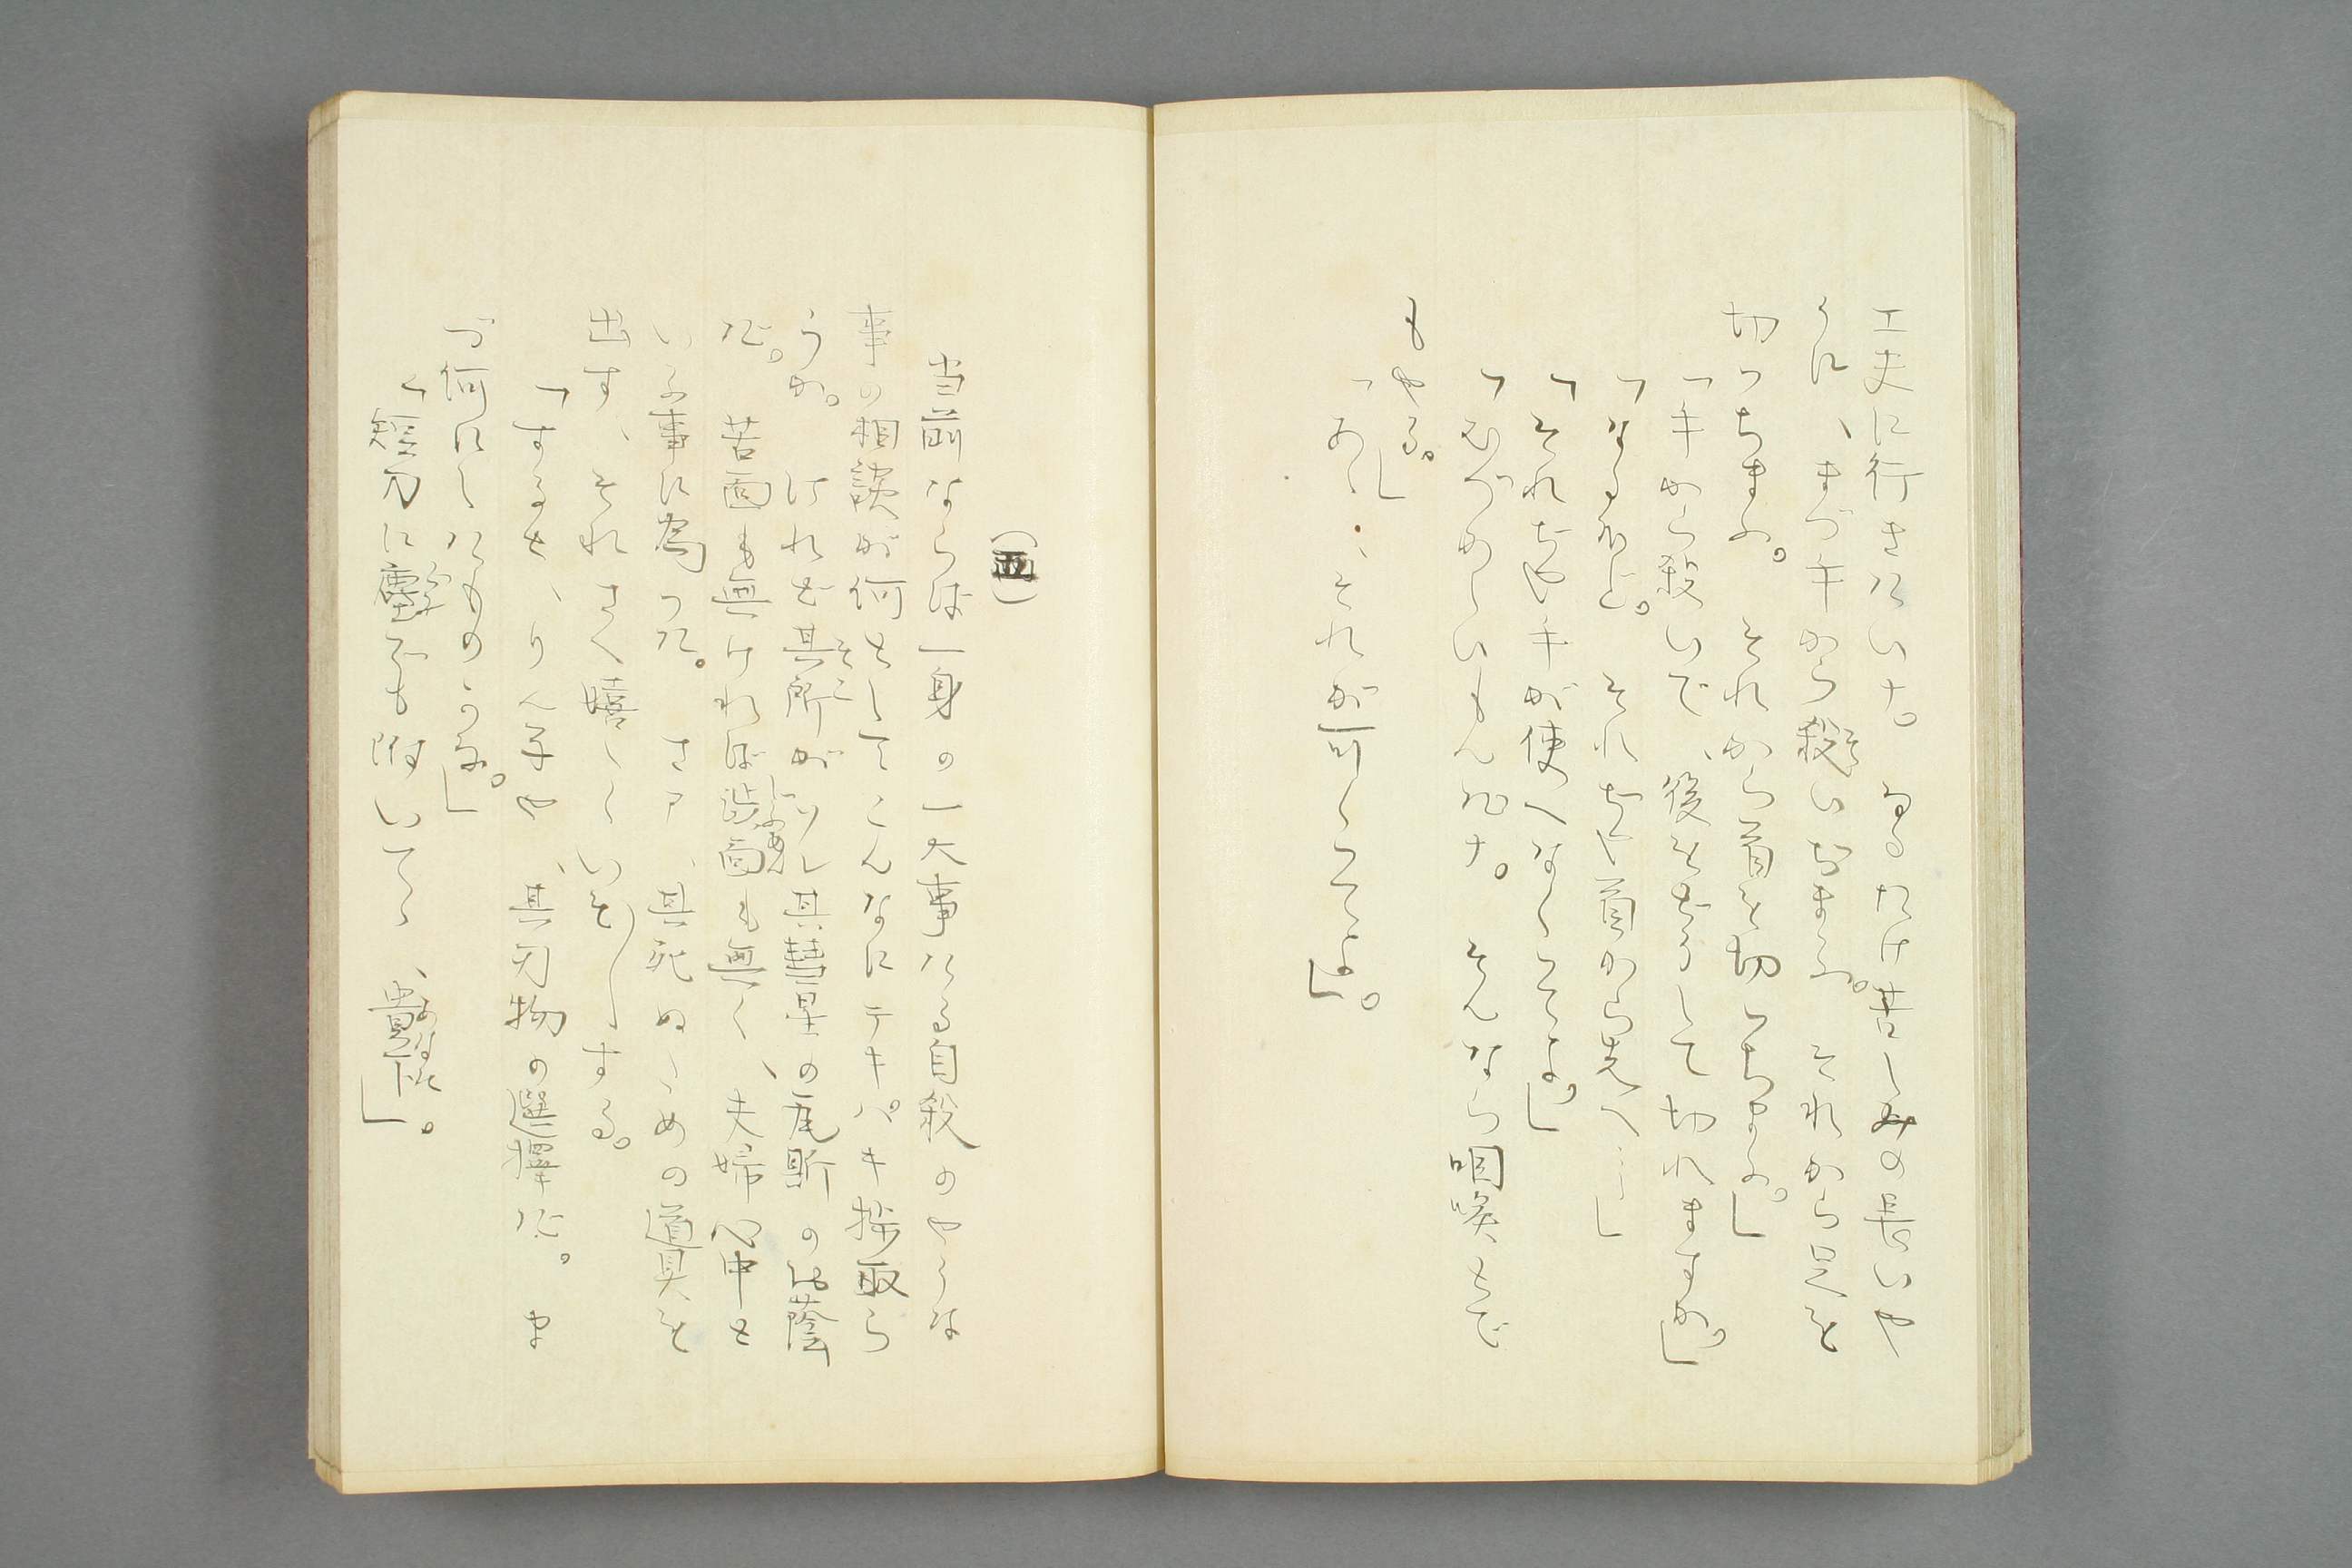 工夫に行きたいナ。なるたけ苦しみの長いや
うに、まづ手から殺いぢまふ。それから足を
切つちまふ。それから首を切つちまふ。」
「手から殺いで、後をどうして切れますか。」
「なるほど。それぢや首から先へ……」
「それぢや手が使へなくつてよ。」
「むづかしいもんだナ。そんなら咽喉をで
もやる。」
「あゝ、それが可くつてよ。」
（五）
当前ならば一身の一大事たる自殺のやうな
事の相談が何としてこんなにテキパキ捗取ら
うか。けれど其所がソレ其彗星の尾斯のお蔭
だ。苦面も無ければ渋面も無く、夫婦心中と
いふ事に為つた。サア、其死ぬための道具を
出す、それさへ嬉しく、いそ〳〵する。
「すると、りん子や、其刃物の選擇だ。ま
づ何にしたものかな。」
「短刀に塵でも附いてゝ、貴下。」